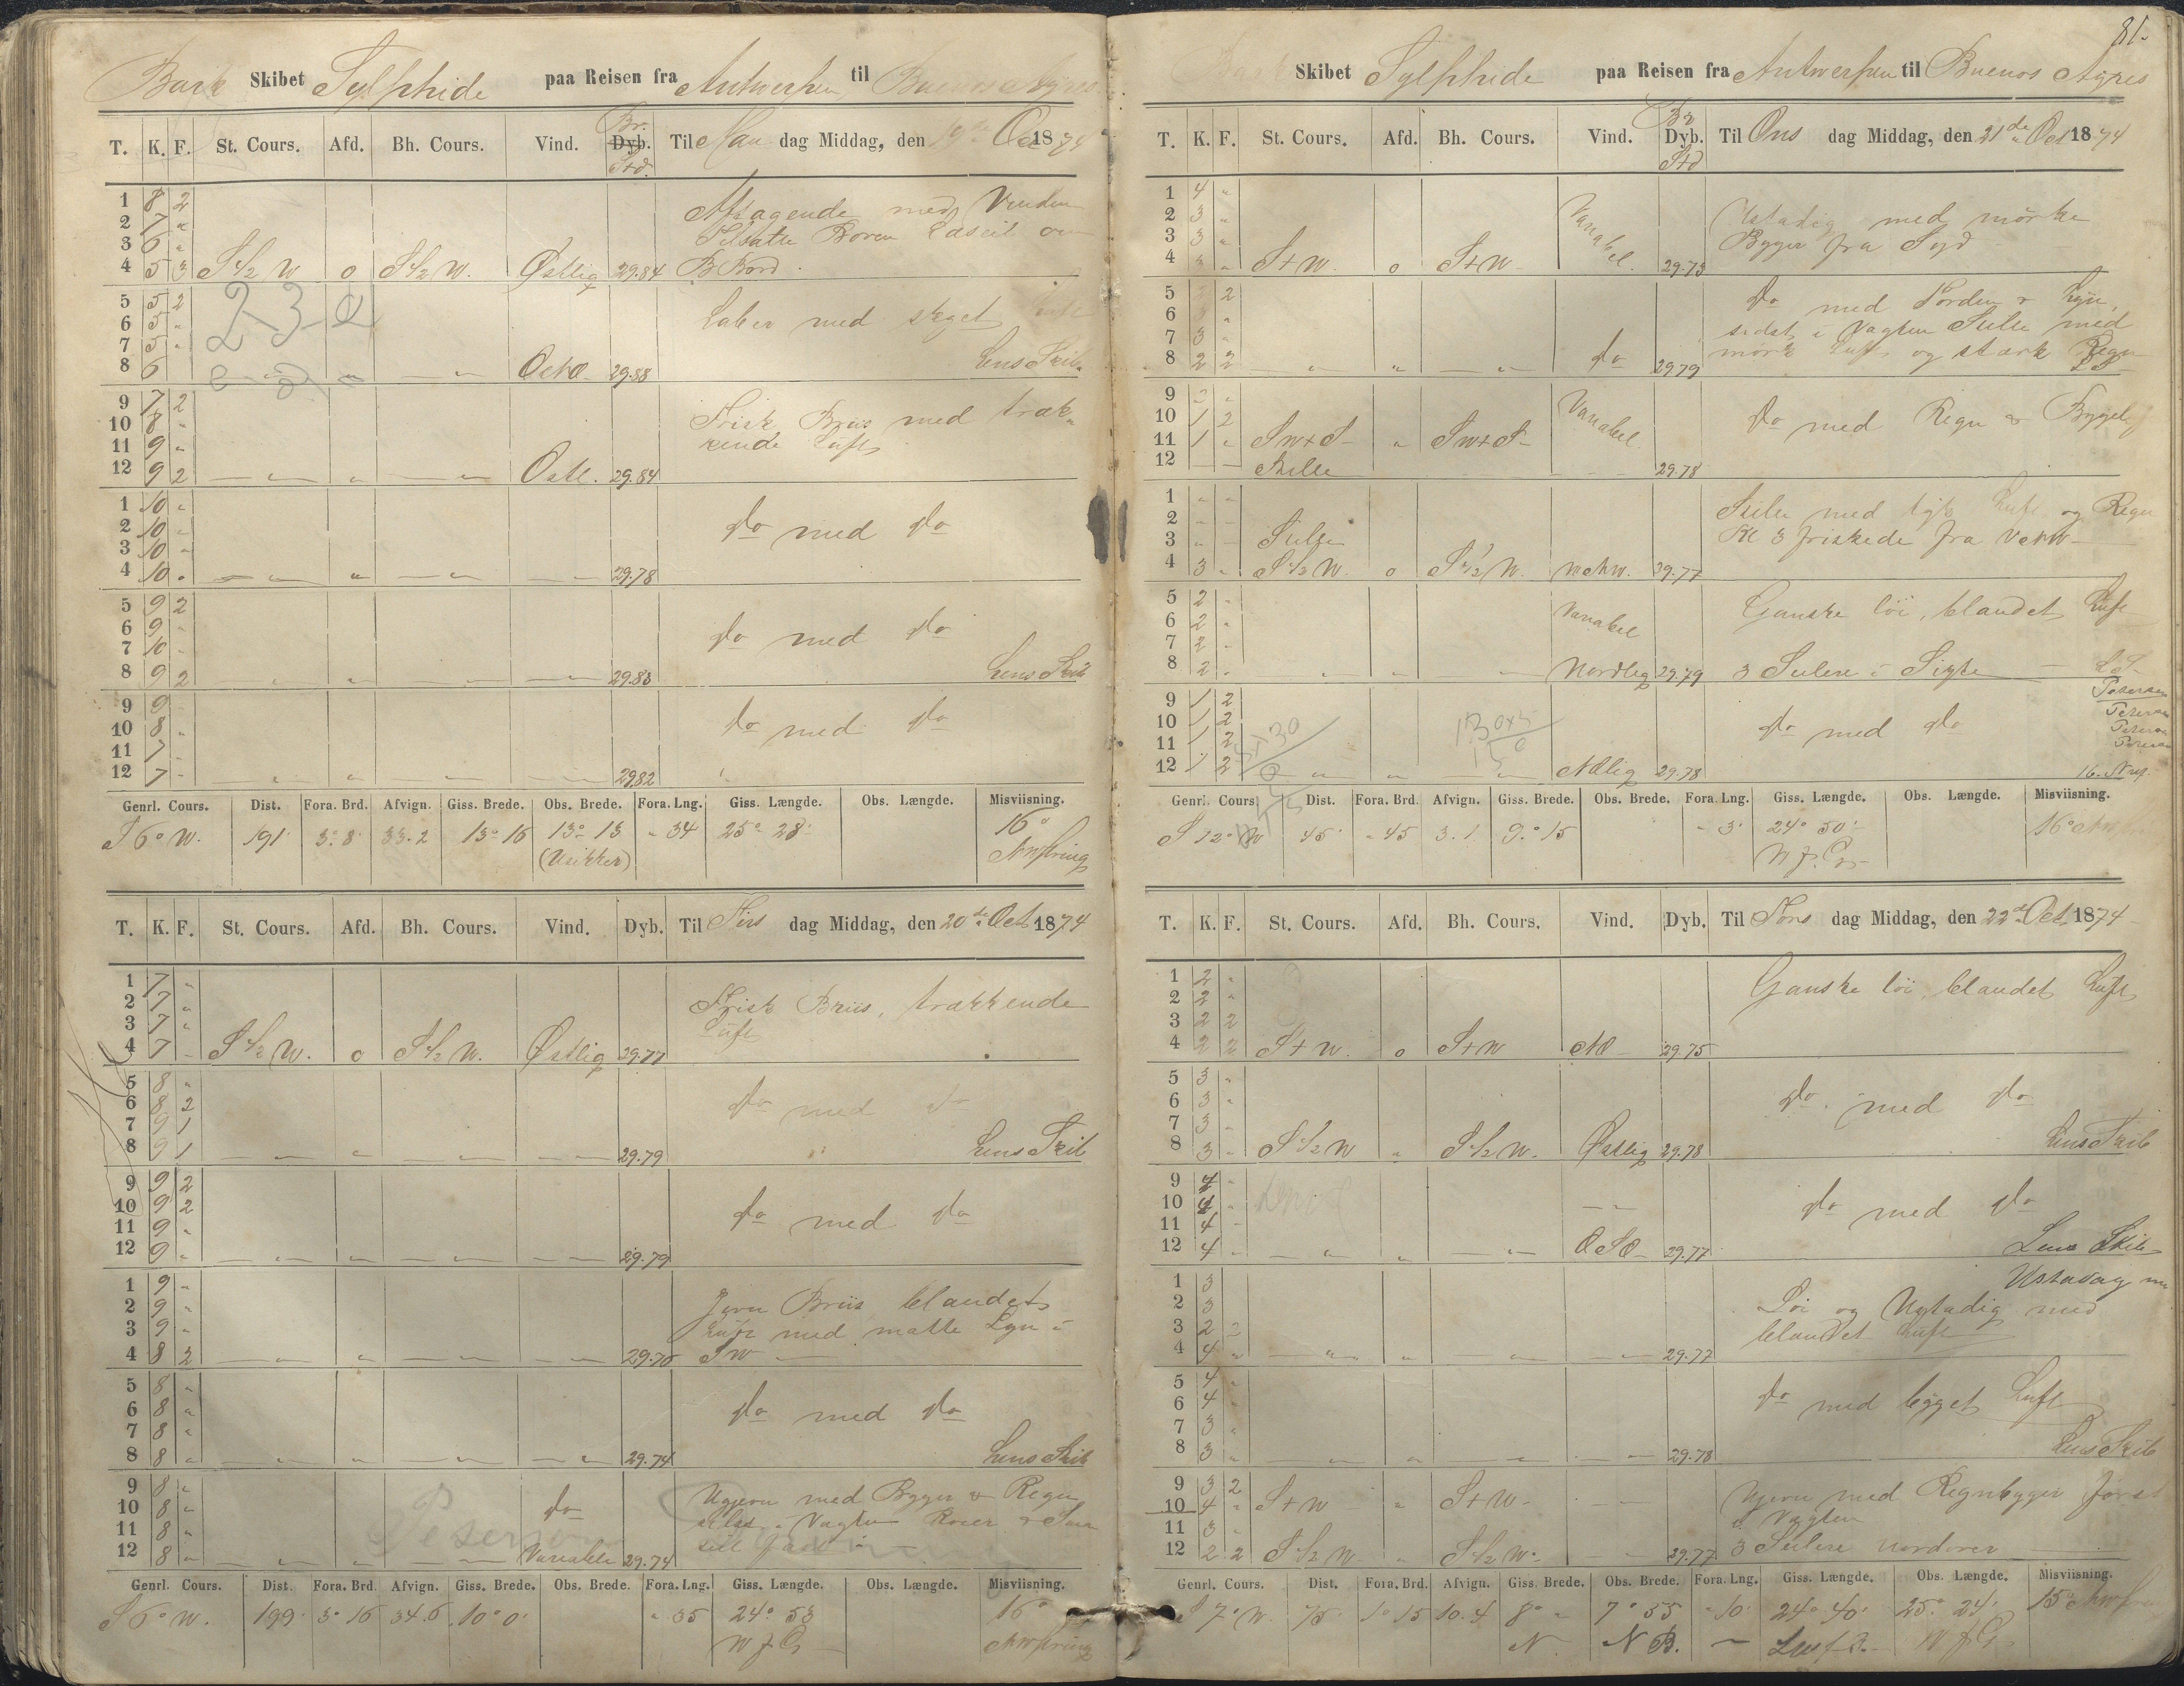 Bark Skibet Sylphide paa Reisen fra Antwerpen til Buenos Ayres
T. K. F. St. Cours. Afd. Bh. Cours. Vind. Br. Dyb. Std. Til Man dag Middag, den 19de Oct 1874
1 8 2 Aftagende med Vinden
2 7 "
3 6 "
4 5 3 S½W 0 S½W. Østlig 29.84 B Bord.
5 5 2 Laber med skyet Luft
6 5 "
7 5 "
8 6 — " — " — " — 29.88 Lens Skib.
230
9 7 2 Frisk Briis med træk-
10 8 " kende Luft
11 9 "
12 9 2 — " — " — " — Østl. 29.84
1 10 " Do med Do
2 10 "
3 10 "
4 10 " — " — " — " — — " — 29.78
5 9 2 Do med Do
6 9 "
7 10 "
8 9 2 — " — " — " — — " — 29.83 Lens Skib
9 9 Do med Do
10 8 "
11 7
12 7 " — " — " — " — — " — 29.82
Genrl. Cours. Dist. Fora. Brd. Afvign. Giss. Brede. Obs. Brede. Fora. Lng. Giss. Længde. Obs. Længde. Misviisning.
S 6° W. 191' 3° 8' 33.2 13° 16 13° 13 " 34 25° 28' 16°
(Usikker)
T. K. F. St. Cours. Afd. Bh. Cours. Vind. Dyb. Til Tirs dag Middag, den 20de Oct 1874
1 7 " Frisk Briis, trækkende
2 7 " Luft
3 7 "
4 7 " S½W. 0 S½W. Østlig 29.77
5 8 " Do med Do
6 8 2
7 9 1
8 9 1 — " — " — " — — " — 29.79 Lens Skib
9 9 2 Do med Do
10 9 2
11 9 "
12 9 " — " — " — " — — " — 29.79
1 9 " Jevn Briis blandet
2 9 " Luft med matte Lyn i
3 9 " SW
4 8 2 — " — " — " — — " — 29.76
5 8 " Do med Do
6 8 "
7 8 "
8 8 " — " — " — " — — " — 29.74 Lens Skib
9 8 " Ujevn med Byger & Regn
10 8 " Do
11 8 " Petersen
12 8 " — " — " — " — Variable 29.74
Genrl. Cours. Dist. Fora. Brd. Afvign. Giss. Brede. Obs. Brede. Fora. Lng. Giss. Længde. Obs. Længde. Misviisning.
S 6° W. 199' 3° 16 34.6 10° 0' " 35 24° 53 16°
W f G
81.
Skibet Sylphide paa Reisen fra Antwerpen til Buenos Ayres
T. K. F. St. Cours. Afd. Bh. Cours. Vind. Br Dyb. Std Til Ons dag Middag, den 21de Oct 1874
1 4 " Variabel. Ustadig med mørke
2 3 " Byger fra Syd
3 3 "
4 3 " S+W. 0 S+W 29.73
5 2 2 Do med Torden & Lyn,
6 " sidst i Vagten Stille med
7 3 " mørk Luft og stærk Regn
8 2 2 — " — " — " — Do 29.79 LS
9 2 " Variabel. Do med Regn & Byger
10 1 2
11 1 " SW+S " SW+S
12 — — Stille 29.78
1 " " Stille med tyk Luft og Regn
2 " " Kl 3 friskede fra VNW
3 " — Stille
4 3 " S½W. 0 S½W. 29.77
5 2 " Variabel Ganske löi, blandet Luft
6 2 "
7 2 "
8 2 " " " " Nordlig 29.79 3 Seilere i Sigte LS
9 1 2 Petersen
10 1 2 Do med Do Petersen
11 1 2 Petersen
12 1 2 — " — " — " — NOlig 29.78 Petersen
Genrl. Cours Dist. Fora. Brd. Afvign. Giss. Brede. Obs. Brede. Fora. Lng. Giss. Længde. Obs. Længde. Misviisning.
S 12° W 45' " 45 3.1 9° 15 " 3' 24° 50' 16°
W f. G
T. K. F. St. Cours. Afd. Bh. Cours. Vind. Dyb. Til Tors dag Middag, den 22de Oct 1874
1 2 " Ganske löi, blandet Luft
2 2 "
3 2 2
4 2 2 S+W. 0 S+W NO 29.75
5 3 " Do. med Do
6 3 "
7 3 "
8 3 " S½W " S½W. Østlig 29.78 Lens Skib
9 4 " Do med Do
10 4 "
11 4 "
12 4 " — " — " — " — OSO 29.77 Lens Skib
1 3 Löi og Ustadig med
2 3 blandet Luft
3 2 2
4 4 " — " — " — " — — " — 29.77
5 4 " Do med bygget Luft
6 4 "
7 3 "
8 3 " — " — " — " — — " — 29.78 Lens Skib
9 3 2 Ujevn med Regnbyger først
10 4 " S+W " S+W i Vagten
11 3 "
12 2 2 S½W " S½W — " — 29.77 3 Seilere
Genrl. Cours. Dist. Fora. Brd. Afvign. Giss. Brede. Obs. Brede. Fora. Lng. Giss. Længde. Obs. Længde. Misviisning.
S 7° W. 75' 1° 15 10.4 8° " 7° 55 " 10' 24° 40' 25° 24' 15°
N N B. W f G